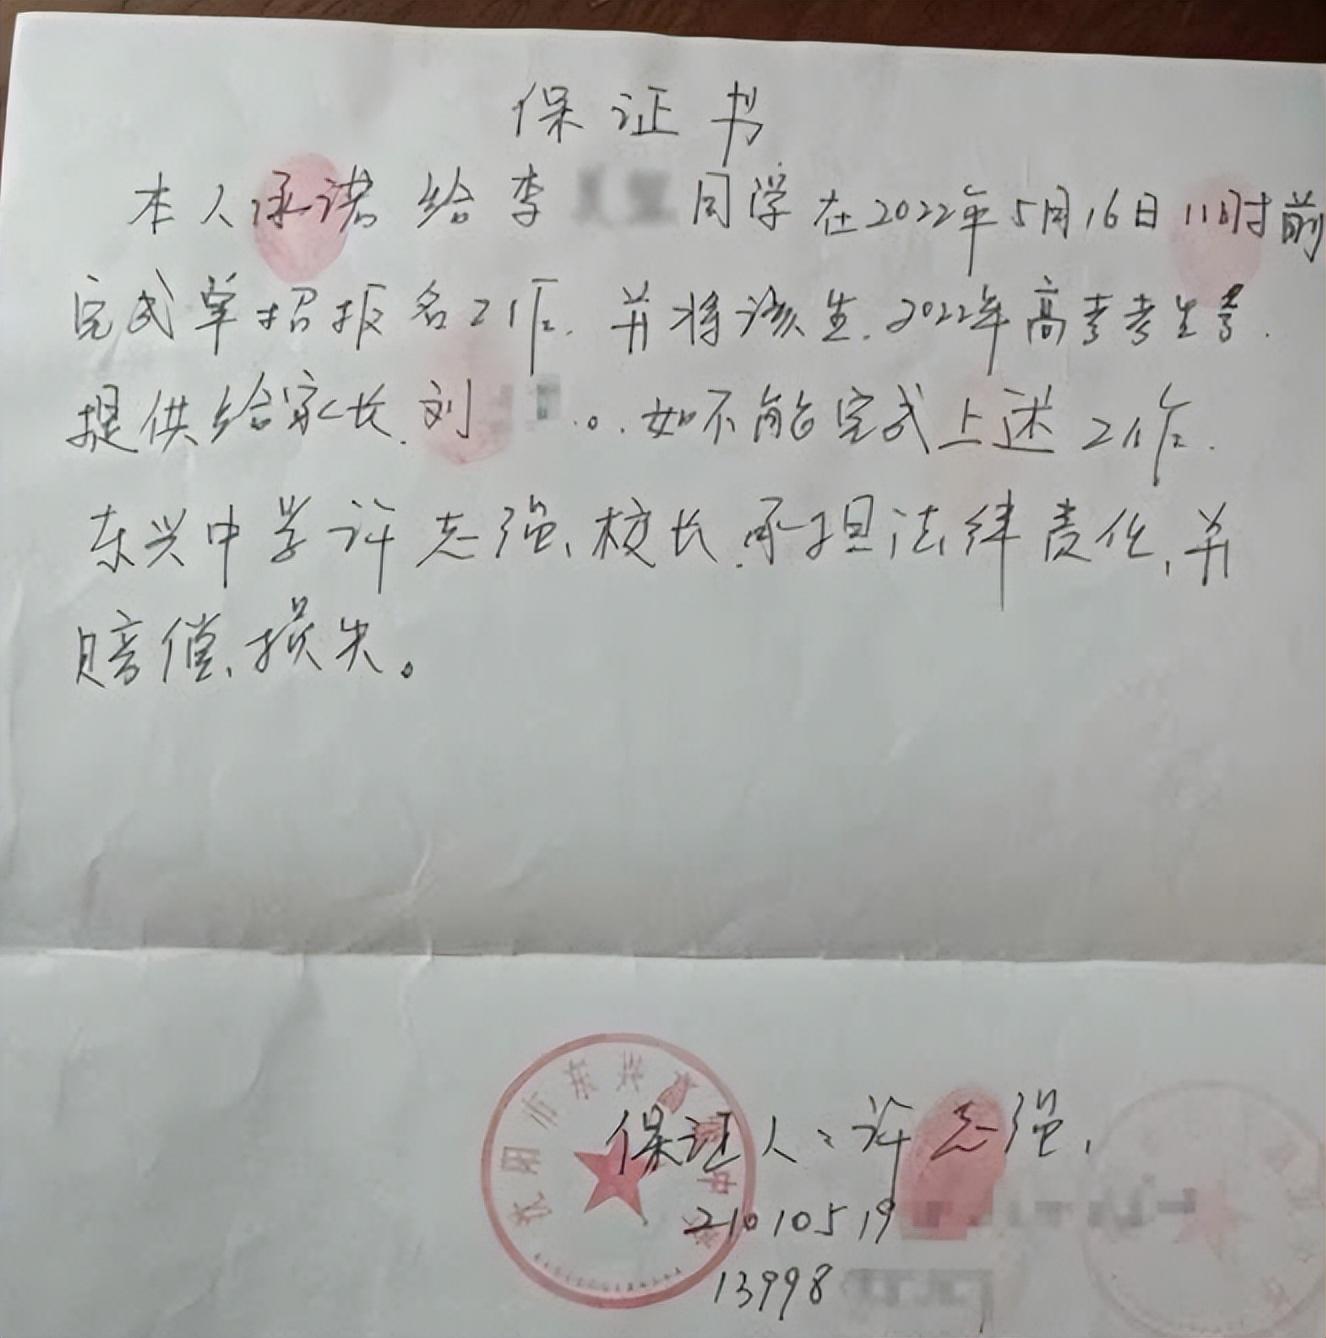 保证书
本人承诺给李 同学在2022年5月16日11时前
完成单招报名工作.并将该生.2022年高考考生号.
提供给家长.刘 。.如不能完成上述工作.
东兴中学许志强、校长.承担法律责任、并
赔偿、损失。
沈阳市东兴高级中学
保证人:许志强、
21010519
13998